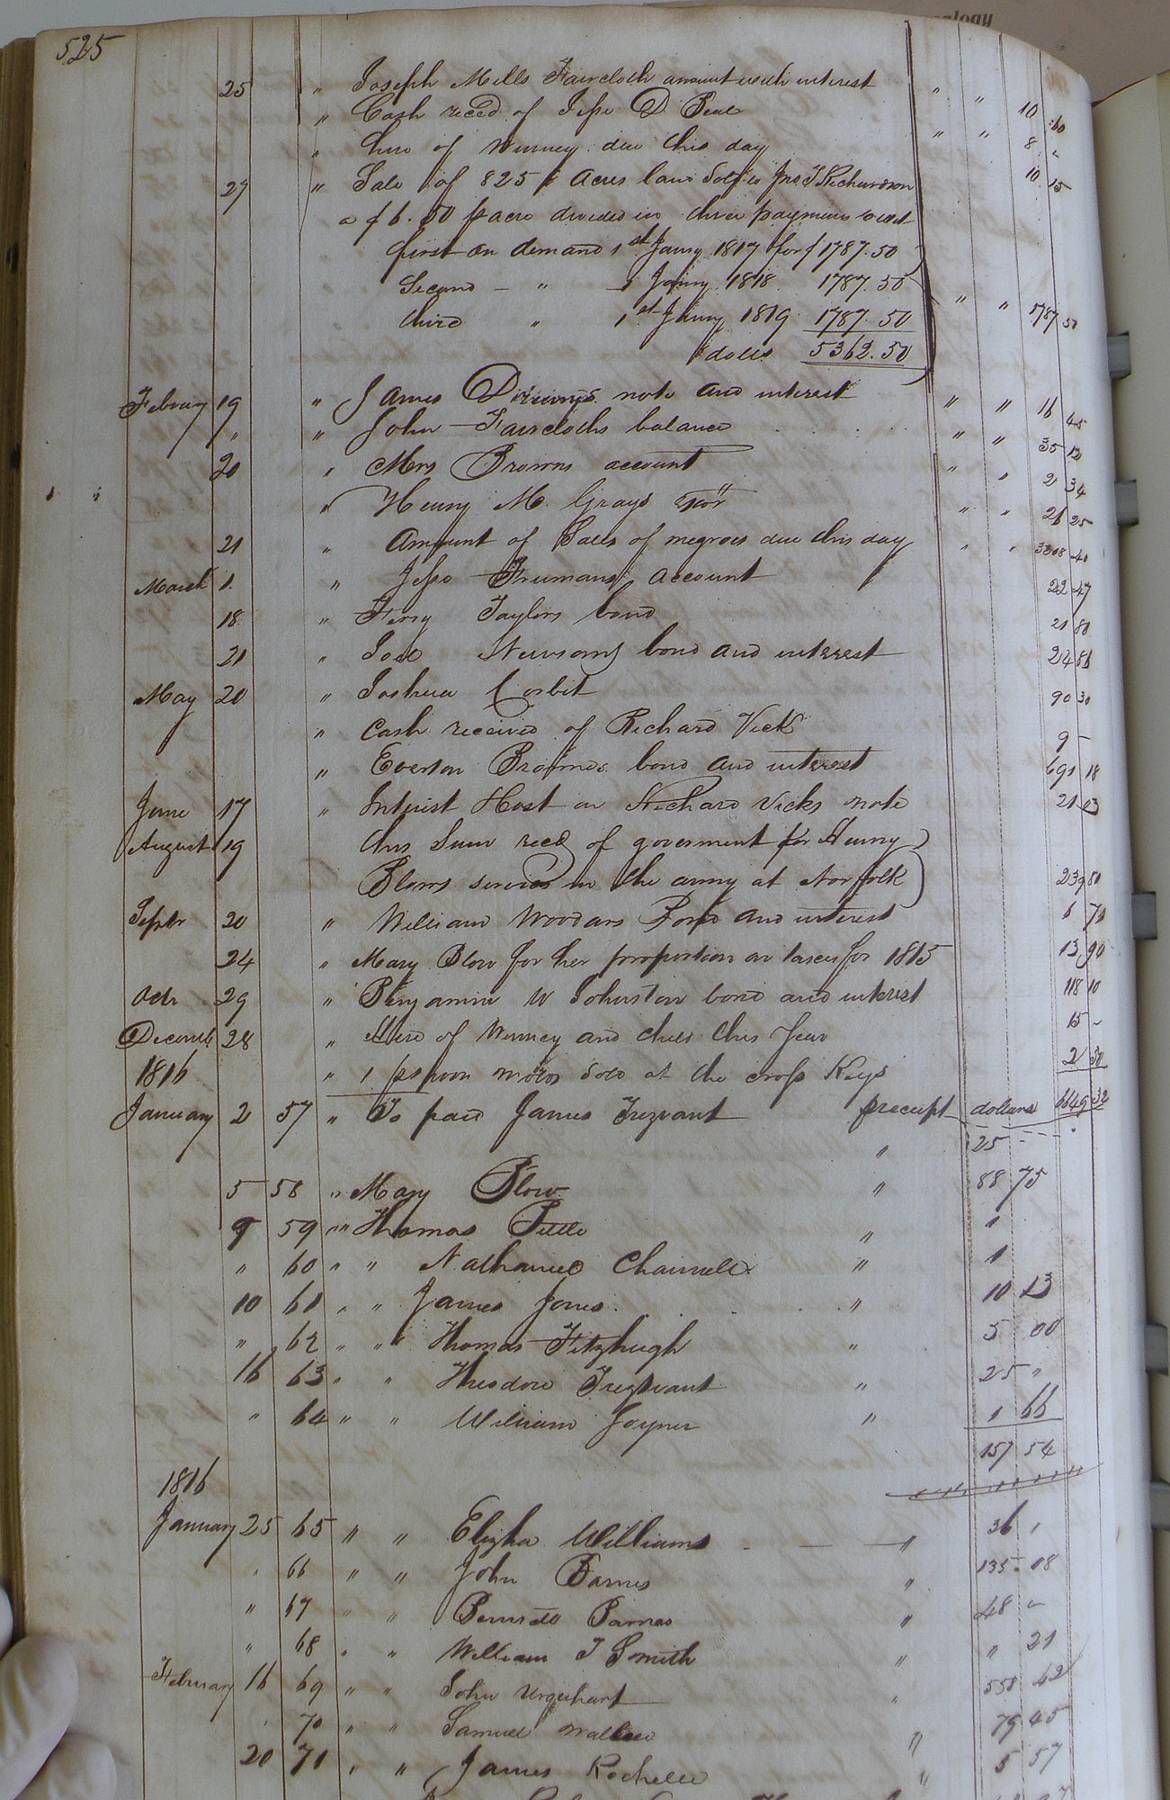 ealogy
525
25 " Joseph Mills Faircloth amount with interest " " 10 60
" Cash recd of Jesse D Beal " " 8 "
" hire of Winney due this day 10 15
27 " Sale of 825 Acres land Sold to Jno T Richardson
a $6.50 p acre divided in three payments
first on demand 1st Jany 1817 for $1787.50
Second - " 1 Jany 1818 1787.50
third " 1st Jany 1819 1787.50 " " 1787 50
dolls 5362.50
Febuary 19 " James note and interest " " 16 45
" " John Faircloths balance " " 35 12
20 " Mrs Browns account " " 2 34
" Henry M. Grays " " 26 25
21 " Amount of Sales of negroes due this day " " 3308 40
March 1. " Jesse Freemans account 22 47
18 " Taylors bond 21 80
21 " Joel Newsoms bond and interest 24 86
May 20 " Joshua Corbit 90 30
" Cash received of Richard Vick 9 -
" Everton bond and interest 691 18
June 17 " Interest on Richard Vicks note 21 03
August 19 this Sum recd of goverment for Henry
Blows services in the army at Norfolk 239 80
Septr 20 " William Woodars Bond and interest 6 70
24 " Mary Blow for her proportion on taxes for 1815 13 90
Octr 29 " Benjamin W Johnston bond and interest 118 10
Decemb 28 " Hire of Winney and this Year 15 -
1816 " 1 Sold at the Cross Keys 2 50
January 2 57 " To paid James Trezvant p receipt dollars 6649 32
" 25
5 58 " Mary Blow " 88 75
9 59 " " Thomas " 1
" 60 " " Nathaniel Channell " 1
10 61 " " James Jones " 10 13
" 62 " " Thomas Fitzhugh " 5 00
16 63 " " Theodore Trezvant " 25 "
" 64 " " William Joyner " 1 66
157 54
1816
January 25 65 " " Elizha Williams " 36 "
" 66 " " John Barnes " 135 08
" 67 " " Barnes " 48 -
" 68 " " William T Smith " " 21
February 16 69 " " John Urquhart " 558 42
" 70 " " Samuel Wallace " 79 45
20 71 " " James Rochelle " 5 57